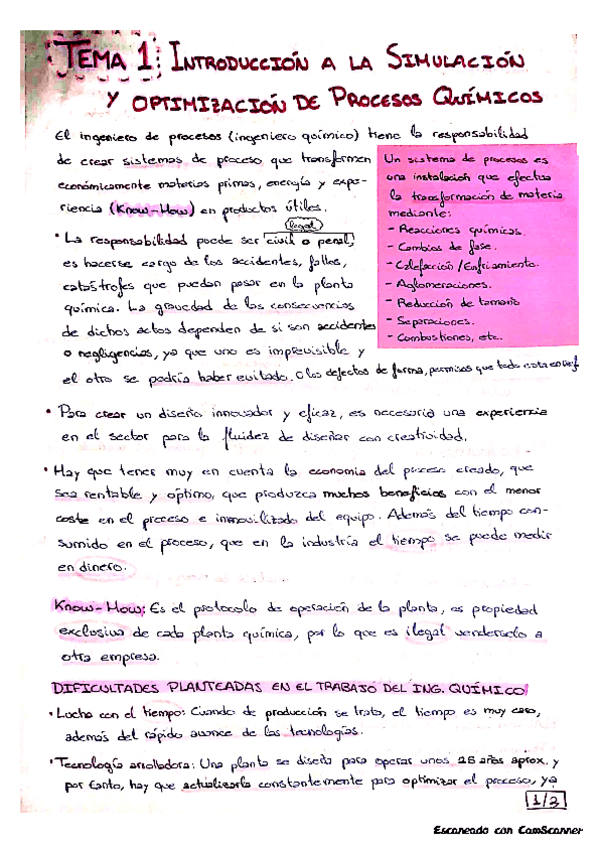 TEMA 1: INTRODUCCIÓN A LA SIMULACIÓN
Y OPTIMIZACIÓN DE PROCESOS QUÍMICOS
El ingeniero de procesos (ingeniero químico) tiene la responsabilidad
de crear sistemas de proceso que transformen
económicamente materias primas, energía y expe-
riencia (Know-How) en productos útiles.
legal
• La responsabilidad puede ser civil o penal,
es hacerse cargo de los accidentes, fallos,
catástrofes que puedan pasar en la planta
química. La gravedad de las consecuencias
de dichos actos dependen de si son accidentes
o negligencias, ya que uno es imprevisible y
el otro se podría haber evitado. O los defectos de forma, permisos que todo esta en
Un sistema de procesos es
una instalación que efectua
la transformación de materia
mediante:
- Reacciones químicas.
- Cambios de fase.
- Calefacción/Enfriamiento.
- Aglomeraciones.
- Reducción de tamaño
- Separaciones.
- Combustiones, etc..
• Para crear un diseño innovador y eficaz, es necesaria una experiencia
en el sector para la fluidez de diseñar con creatividad.
• Hay que tener muy en cuenta la economía del proceso creado, que
sea rentable y óptimo, que produzca muchos beneficios con el menor
coste en el proceso e inmovilizado del equipo. Además del tiempo con-
sumido en el proceso, que en la industria el tiempo se puede medir
en dinero.
Know-How: Es el protocolo de operación de la planta, es propiedad
exclusiva de cada planta química, por lo que es ilegal venderselo a
otra empresa.
DIFICULTADES PLANTEADAS EN EL TRABAJO DEL ING. QUÍMICO
• Lucha con el tiempo: Cuando de producción se trata, el tiempo es muy caro,
además del rápido avance de las tecnologías.
• Tecnología arrolladora: Una planta se diseña para operar unos 25 años aprox. y
por tanto, hay que actualizarla constantemente para optimizar el proceso, ya
1/3
Escaneado con CamScanner